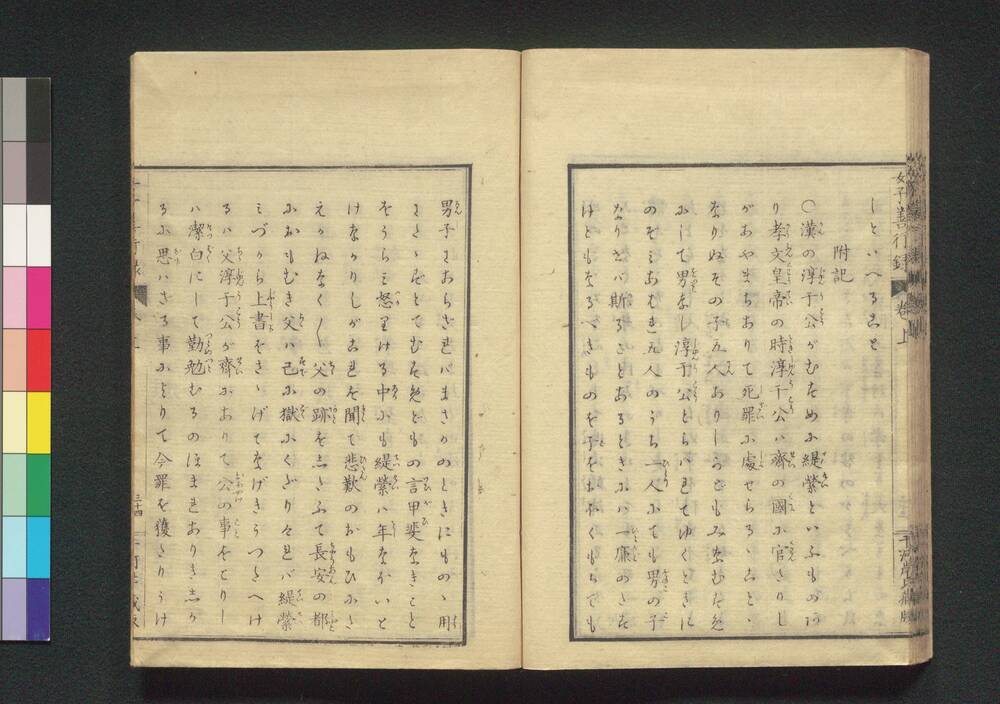 女子善行録 卷上
しといへるこそ
附記
○漢の淳于公がむすめに緹縈といふものあ
り孝文皇帝の時淳于公ハ齊の國に官たりし
があやまちありて死罪に處せらるゝことゝ
なりぬその子五人ありしかどもみなむすめ
にして男なし淳于公とらハれてゆくときに
のぞミあむれ五人のうち一人にても男の子
なりせバ斯ることあるときにハ一廉のたす
けともなるべきものを子をおほくもちても
男子にあらざれバまさかのときにものゝ用
にたゝずとてむすめどもの言甲斐なきこと
をうらミ怒りける中にも緹縈ハ年なほいと
けなかりしがこれを聞て悲歎のおもひにた
えかねなく〳〵父の跡をしたふて長安の都
におもむき父ハ己に獄にくだりけれバ緹縈
ミづから上書をさゝげてなげきうつたへけ
るハ父淳于公が齊にありて公の事をとりし
ハ潔白にして勤勉むるのほまれありきしか
るに思ハざる事によりて今罪を獲たりうけ
三十四